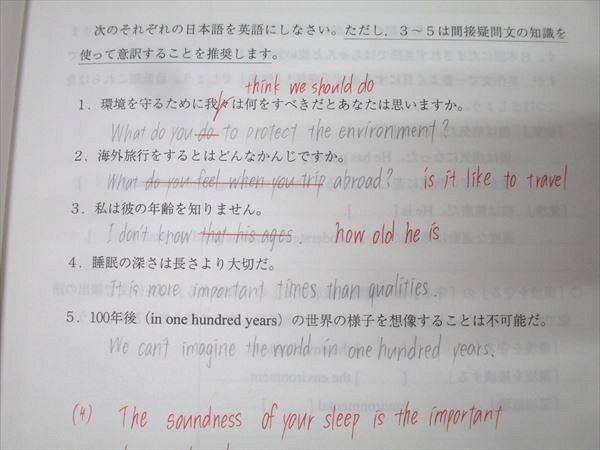 次のそれぞれの日本語を英語にしなさい。ただし，3～5は間接疑問文の知識を
使って意訳することを推奨します。
think we should do
1．環境を守るために我々は何をすべきだとあなたは思いますか。
What do you do to protect the environment?
2．海外旅行をするとはどんなかんじですか。
What do you feel when you trip abroad? is it like to travel
3．私は彼の年齢を知りません。
I don't know that his ages. how old he is
4．睡眠の深さは長さより大切だ。
It is more important times than qualities.
5．100年後（in one hundred years）の世界の様子を想像することは不可能だ。
We can't imagine the world in one hundred years.
(4) The soundness of your sleep is the important